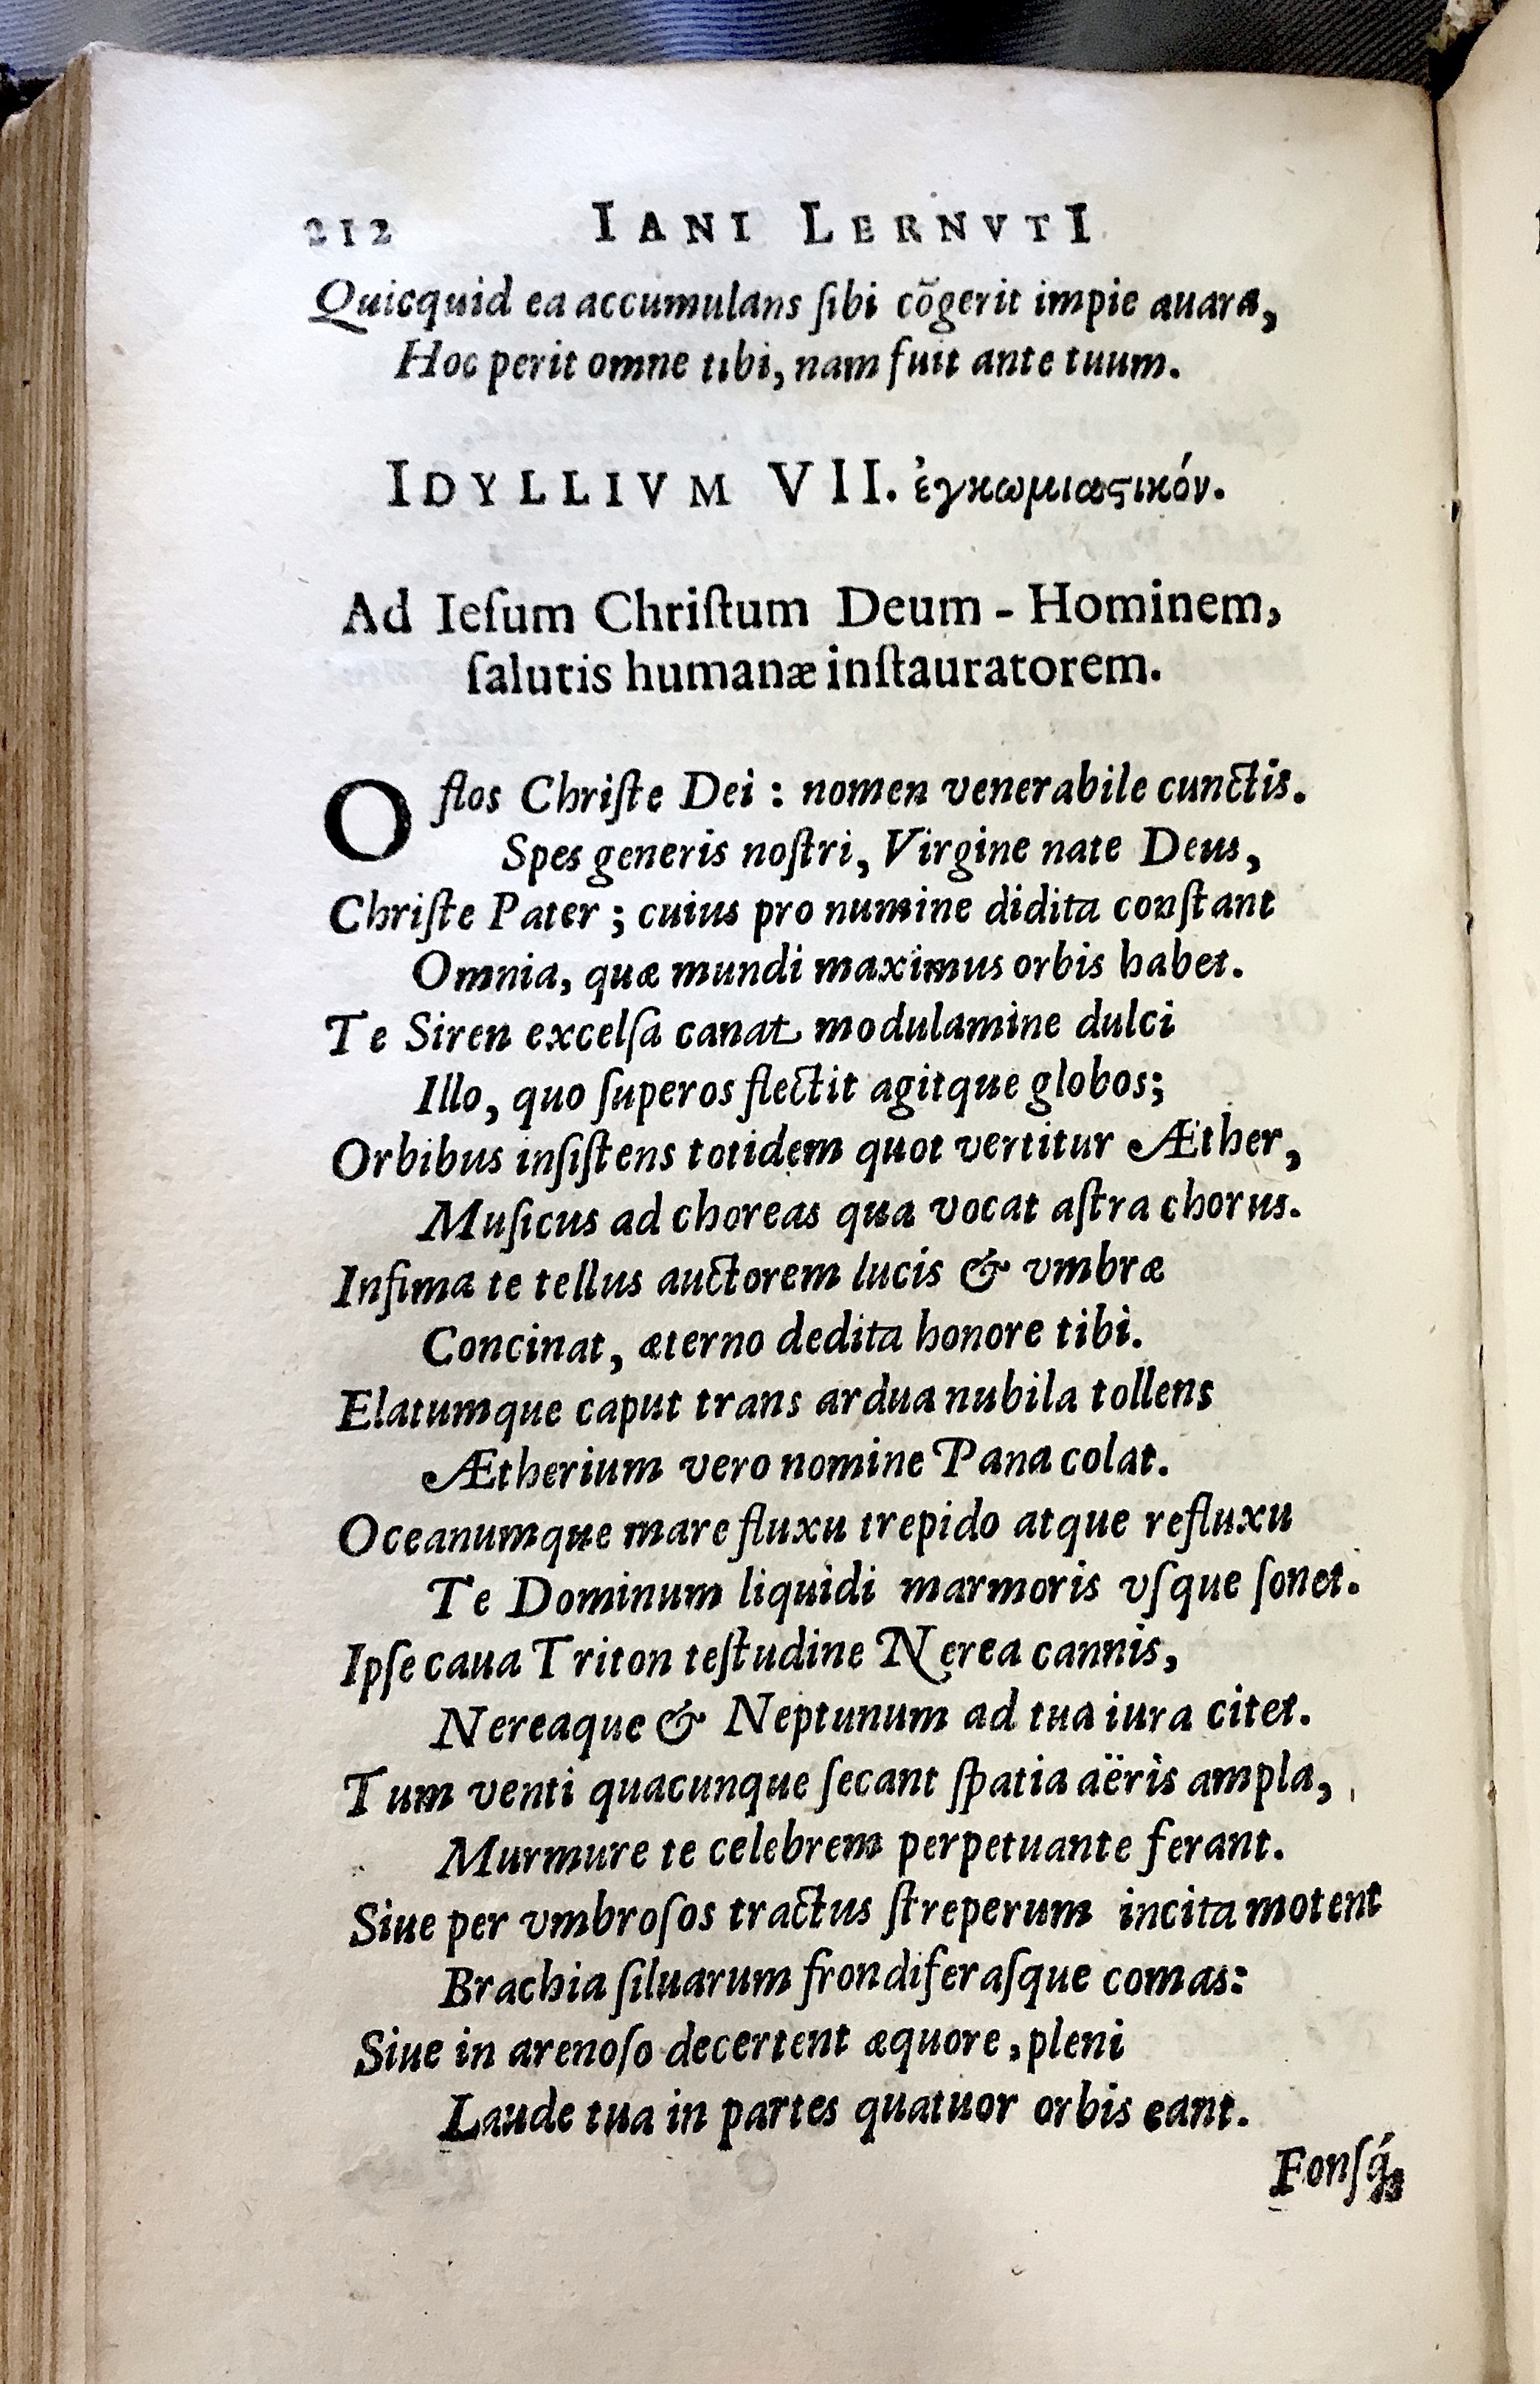 212 IANI LERNVTI
Quicquid ea accumulans ſibi cõgerit impie auara,
Hoc perit omne tibi, nam fuit ante tuum.
IDYLLIVM VII. ἐγκωμιαϛικόν.
Ad Ieſum Chriſtum Deum - Hominem,
ſalutis humanæ inſtauratorem.
O flos Chriſte Dei : nomen venerabile cunctis.
Spes generis noſtri, Virgine nate Deus,
Chriſte Pater ; cuius pro numine didita conſtant
Omnia, quæ mundi maximus orbis habet.
Te Siren excelſa canat modulamine dulci
Illo, quo ſuperos flectit agitque globos;
Orbibus inſiſtens totidem quot vertitur Æther,
Muſicus ad choreas qua vocat aſtra chorus.
Infima te tellus auctorem lucis & vmbræ
Concinat, æterno dedita honore tibi.
Elatumque caput trans ardua nubila tollens
Ætherium vero nomine Pana colat.
Oceanumque mare fluxu trepido atque refluxu
Te Dominum liquidi marmoris vſque ſonet.
Ipſe caua Triton teſtudine Nerea cannis,
Nereaque & Neptunum ad tua iura citet.
Tum venti quacunque ſecant ſpatia aëris ampla,
Murmure te celebrem perpetuante ferant.
Siue per vmbroſos tractus ſtreperum incita motent
Brachia ſiluarum frondiferaſque comas:
Siue in arenoſo decertent æquore, pleni
Laude tua in partes quatuor orbis eant.
Fonſq́;